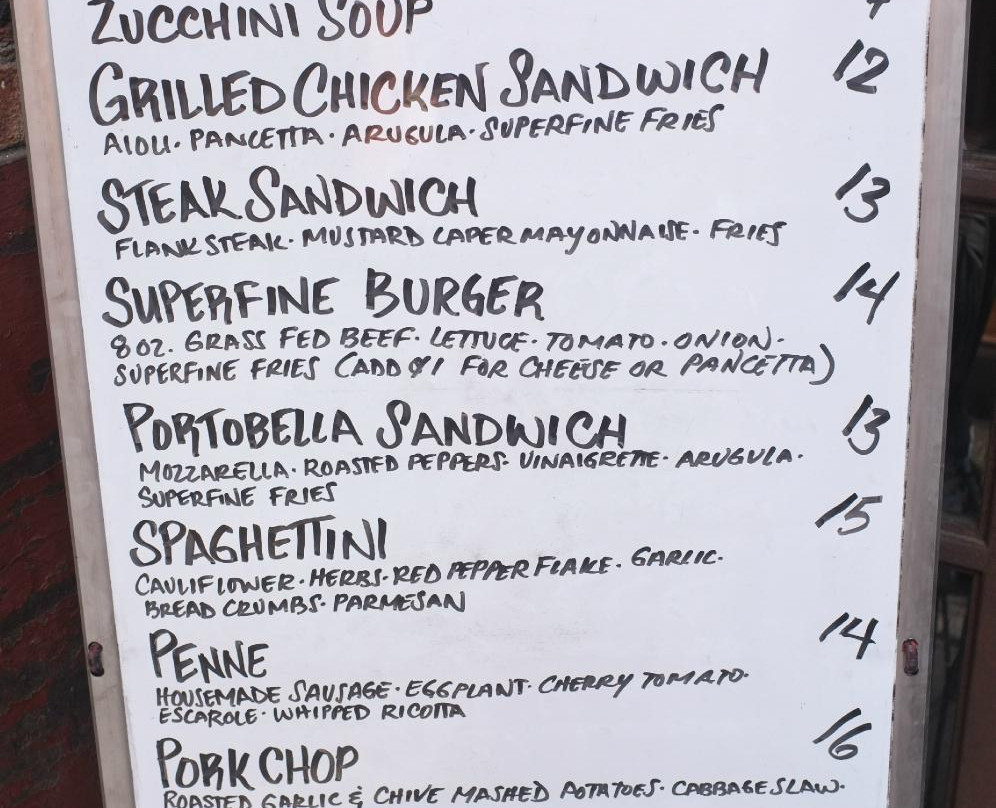 ZUCCHINI SOUP
GRILLED CHICKEN SANDWICH 12
AIOLI. PANCETTA. ARUGULA. SUPERFINE FRIES
STEAK SANDWICH 13
FLANK STEAK. MUSTARD CAPER MAYONNAISE. FRIES
SUPERFINE BURGER 14
8 OZ. GRASS FED BEEF. LETTUCE. TOMATO. ONION.
SUPERFINE FRIES (ADD $1 FOR CHEESE OR PANCETTA)
PORTOBELLA SANDWICH 13
MOZZARELLA. ROASTED PEPPERS. VINAIGRETTE. ARUGULA.
SUPERFINE FRIES
SPAGHETTINI 15
CAULIFLOWER. HERBS. RED PEPPER FLAKE. GARLIC.
BREAD CRUMBS. PARMESAN
PENNE 14
HOUSEMADE SAUSAGE. EGGPLANT. CHERRY TOMATO.
ESCAROLE. WHIPPED RICOTTA
PORK CHOP 16
ROASTED GARLIC & CHIVE MASHED POTATOES. CABBAGE SLAW.